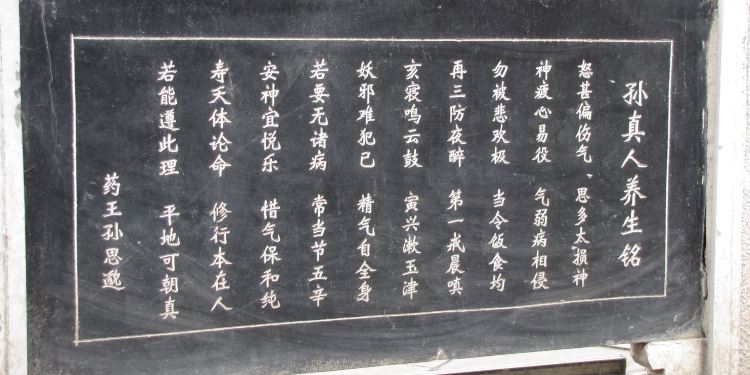 孙真人养生铭
怒甚偏伤气、思多太损神
神疲心易役 气弱病相侵
勿被悲欢极 当令饭食均
再三防夜醉 第一戒晨嗔
亥寝鸣云鼓 寅兴漱玉津
妖邪难犯己 精气自全身
若要无诸病 常当节五辛
安神宜悦乐 惜气保和纯
寿天体论命 修行本在人
若能遵此理 平地可朝真
药王孙思邈